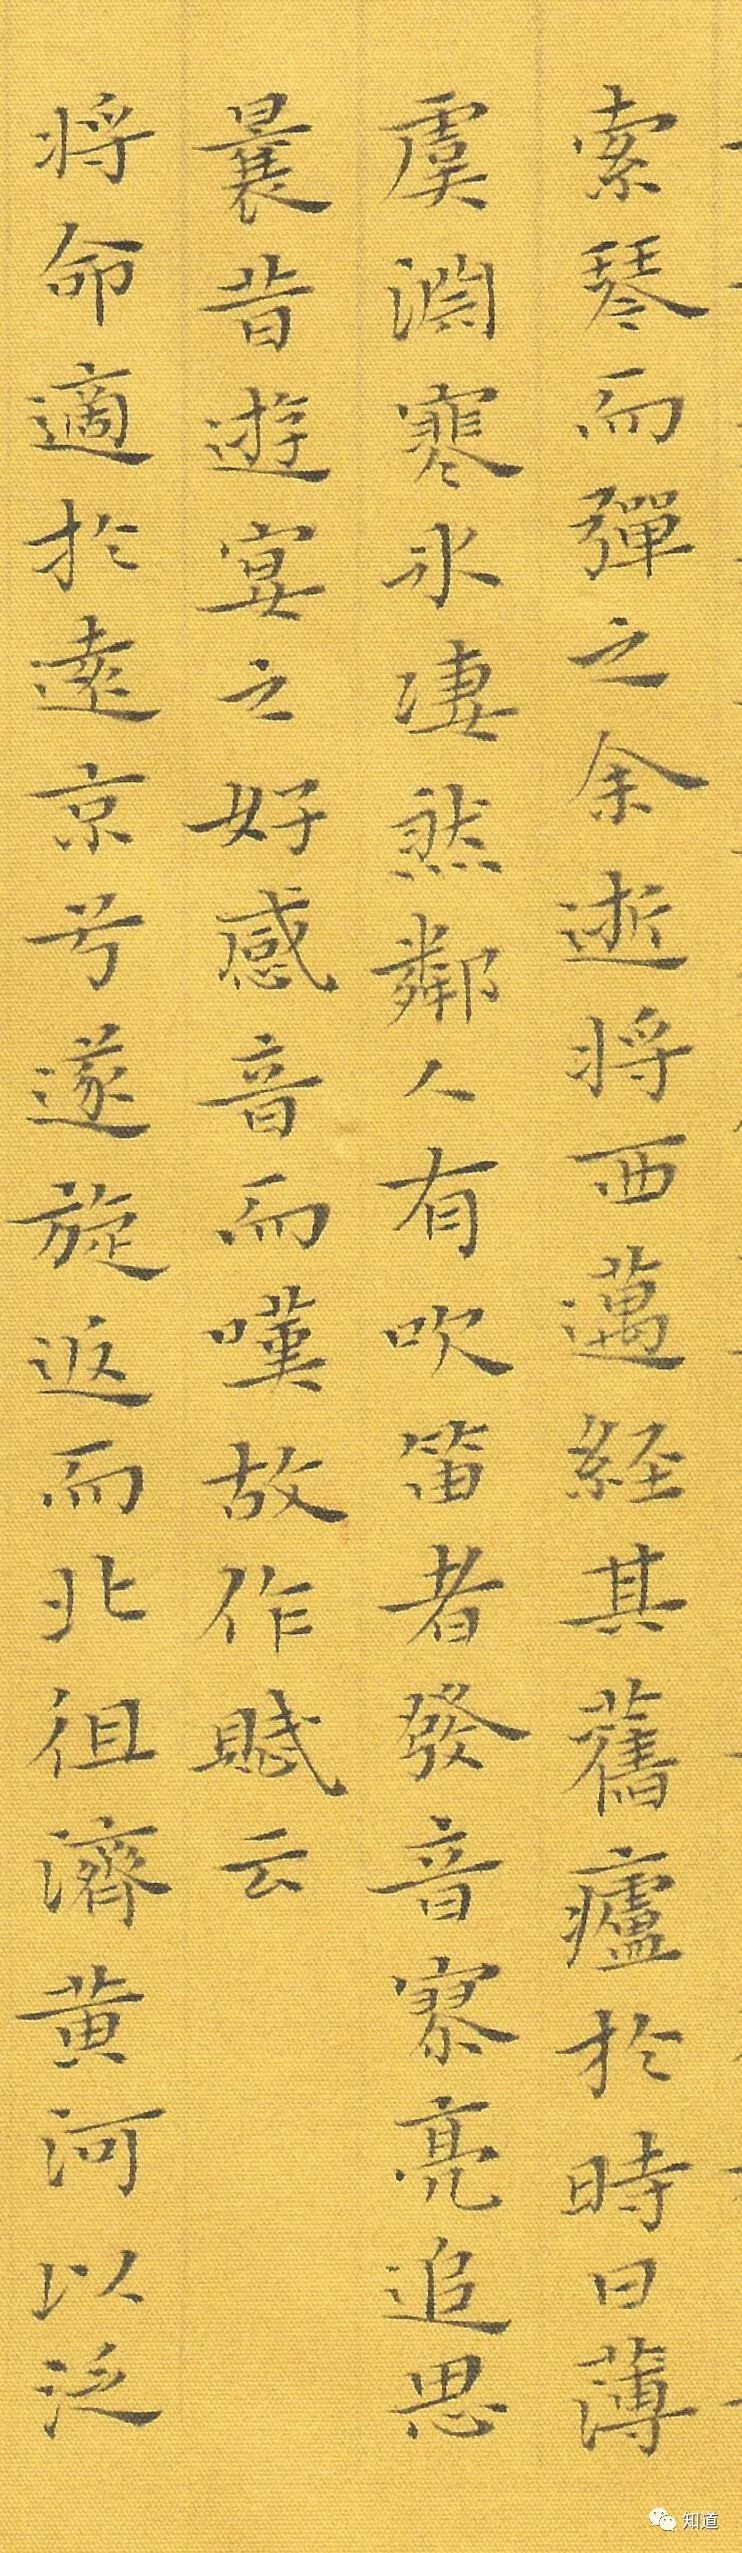 索琴而彈之余逝將西邁經其舊廬於時日薄
虞淵寒冰凄然鄰人有吹笛者發音寥亮追思
曩昔遊宴之好感音而嘆故作賦云
將命適於遠京兮遂旋返而北徂濟黄河以泛
知道